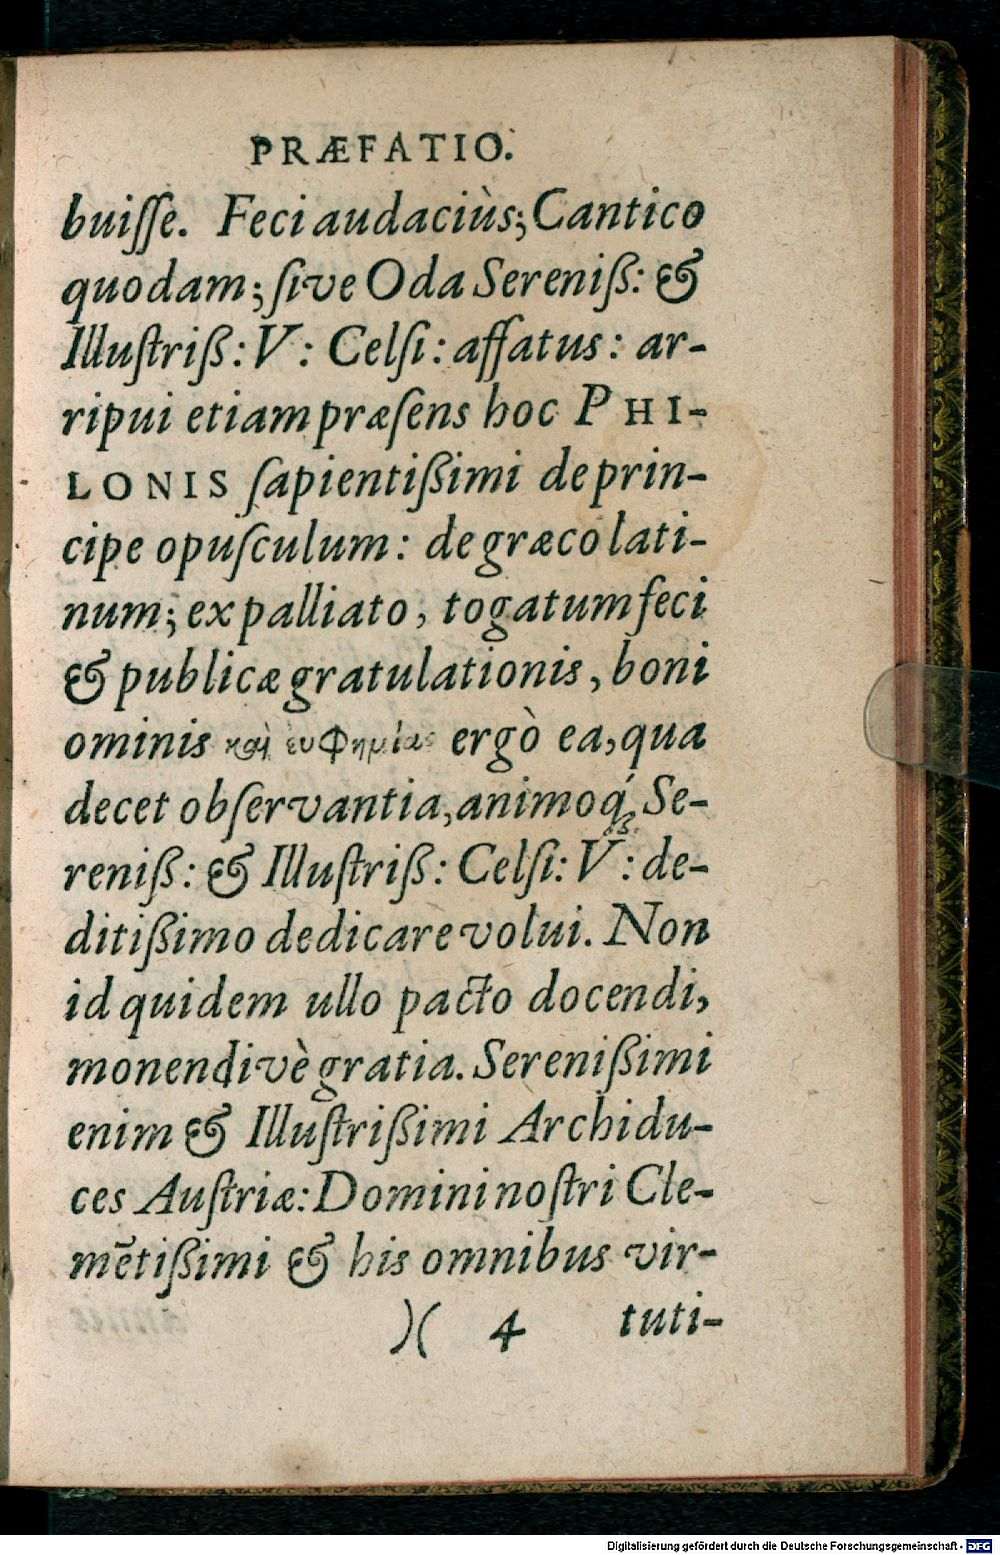 PRÆFATIO.
buiſſe. Feci audaciùs; Cantico
quodam; ſive Oda Sereniß: &
Illuſtriß: V: Celſi: affatus: ar-
ripui etiam præſens hoc PHI-
LONIS ſapientißimi de prin-
cipe opuſculum: de græco lati-
num; ex palliato, togatum feci
& publicæ gratulationis, boni
ominis καὶ ευφημίας ergò ea, qua
decet obſervantia, animoq́ꝫ Se-
reniß: & Illuſtriß: Celſi: V: de-
ditißimo dedicare volui. Non
id quidem ullo pacto docendi,
monendivè gratia. Serenißimi
enim & Illuſtrißimi Archidu-
ces Auſtriæ: Domini noſtri Cle-
mētißimi & his omnibus vir-
)( 4 tuti-
Digitalisierung gefördert durch die Deutsche Forschungsgemeinschaft - DFG